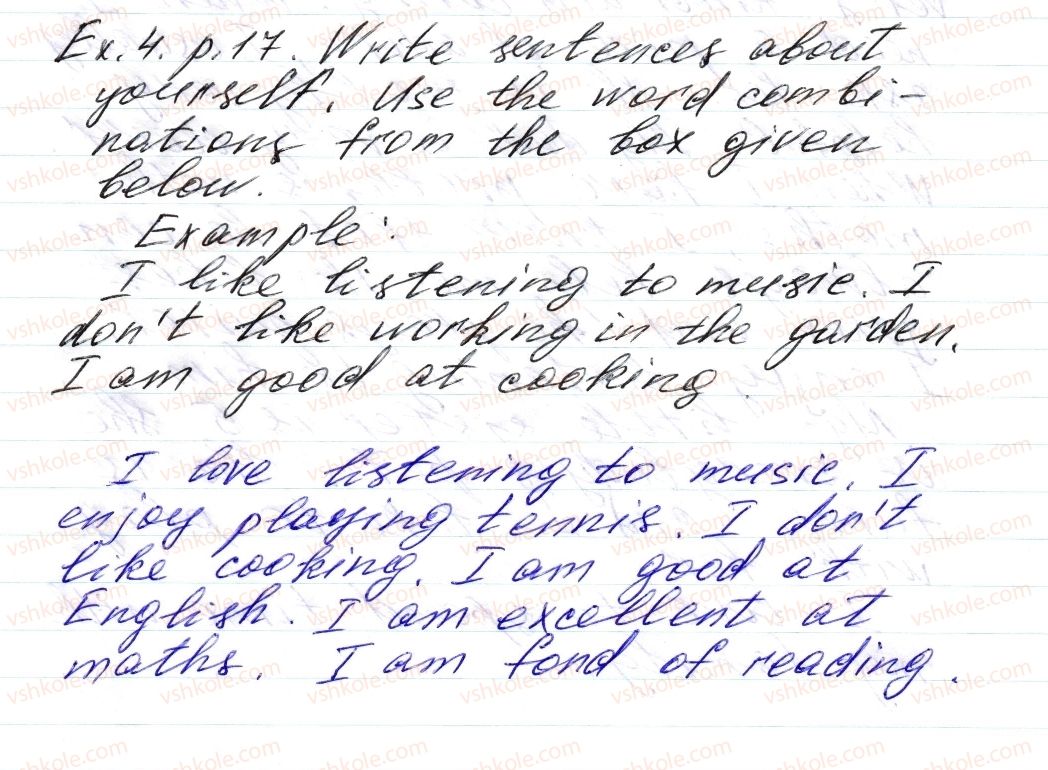 Ex. 4. p. 17. Write sentences about
yourself. Use the word combi-
nations from the box given
below.
Example:
I like listening to music. I
don't like working in the garden.
I am good at cooking.
I love listening to music. I
enjoy playing tennis. I don't
like cooking. I am good at
English. I am excellent at
maths. I am fond of reading.